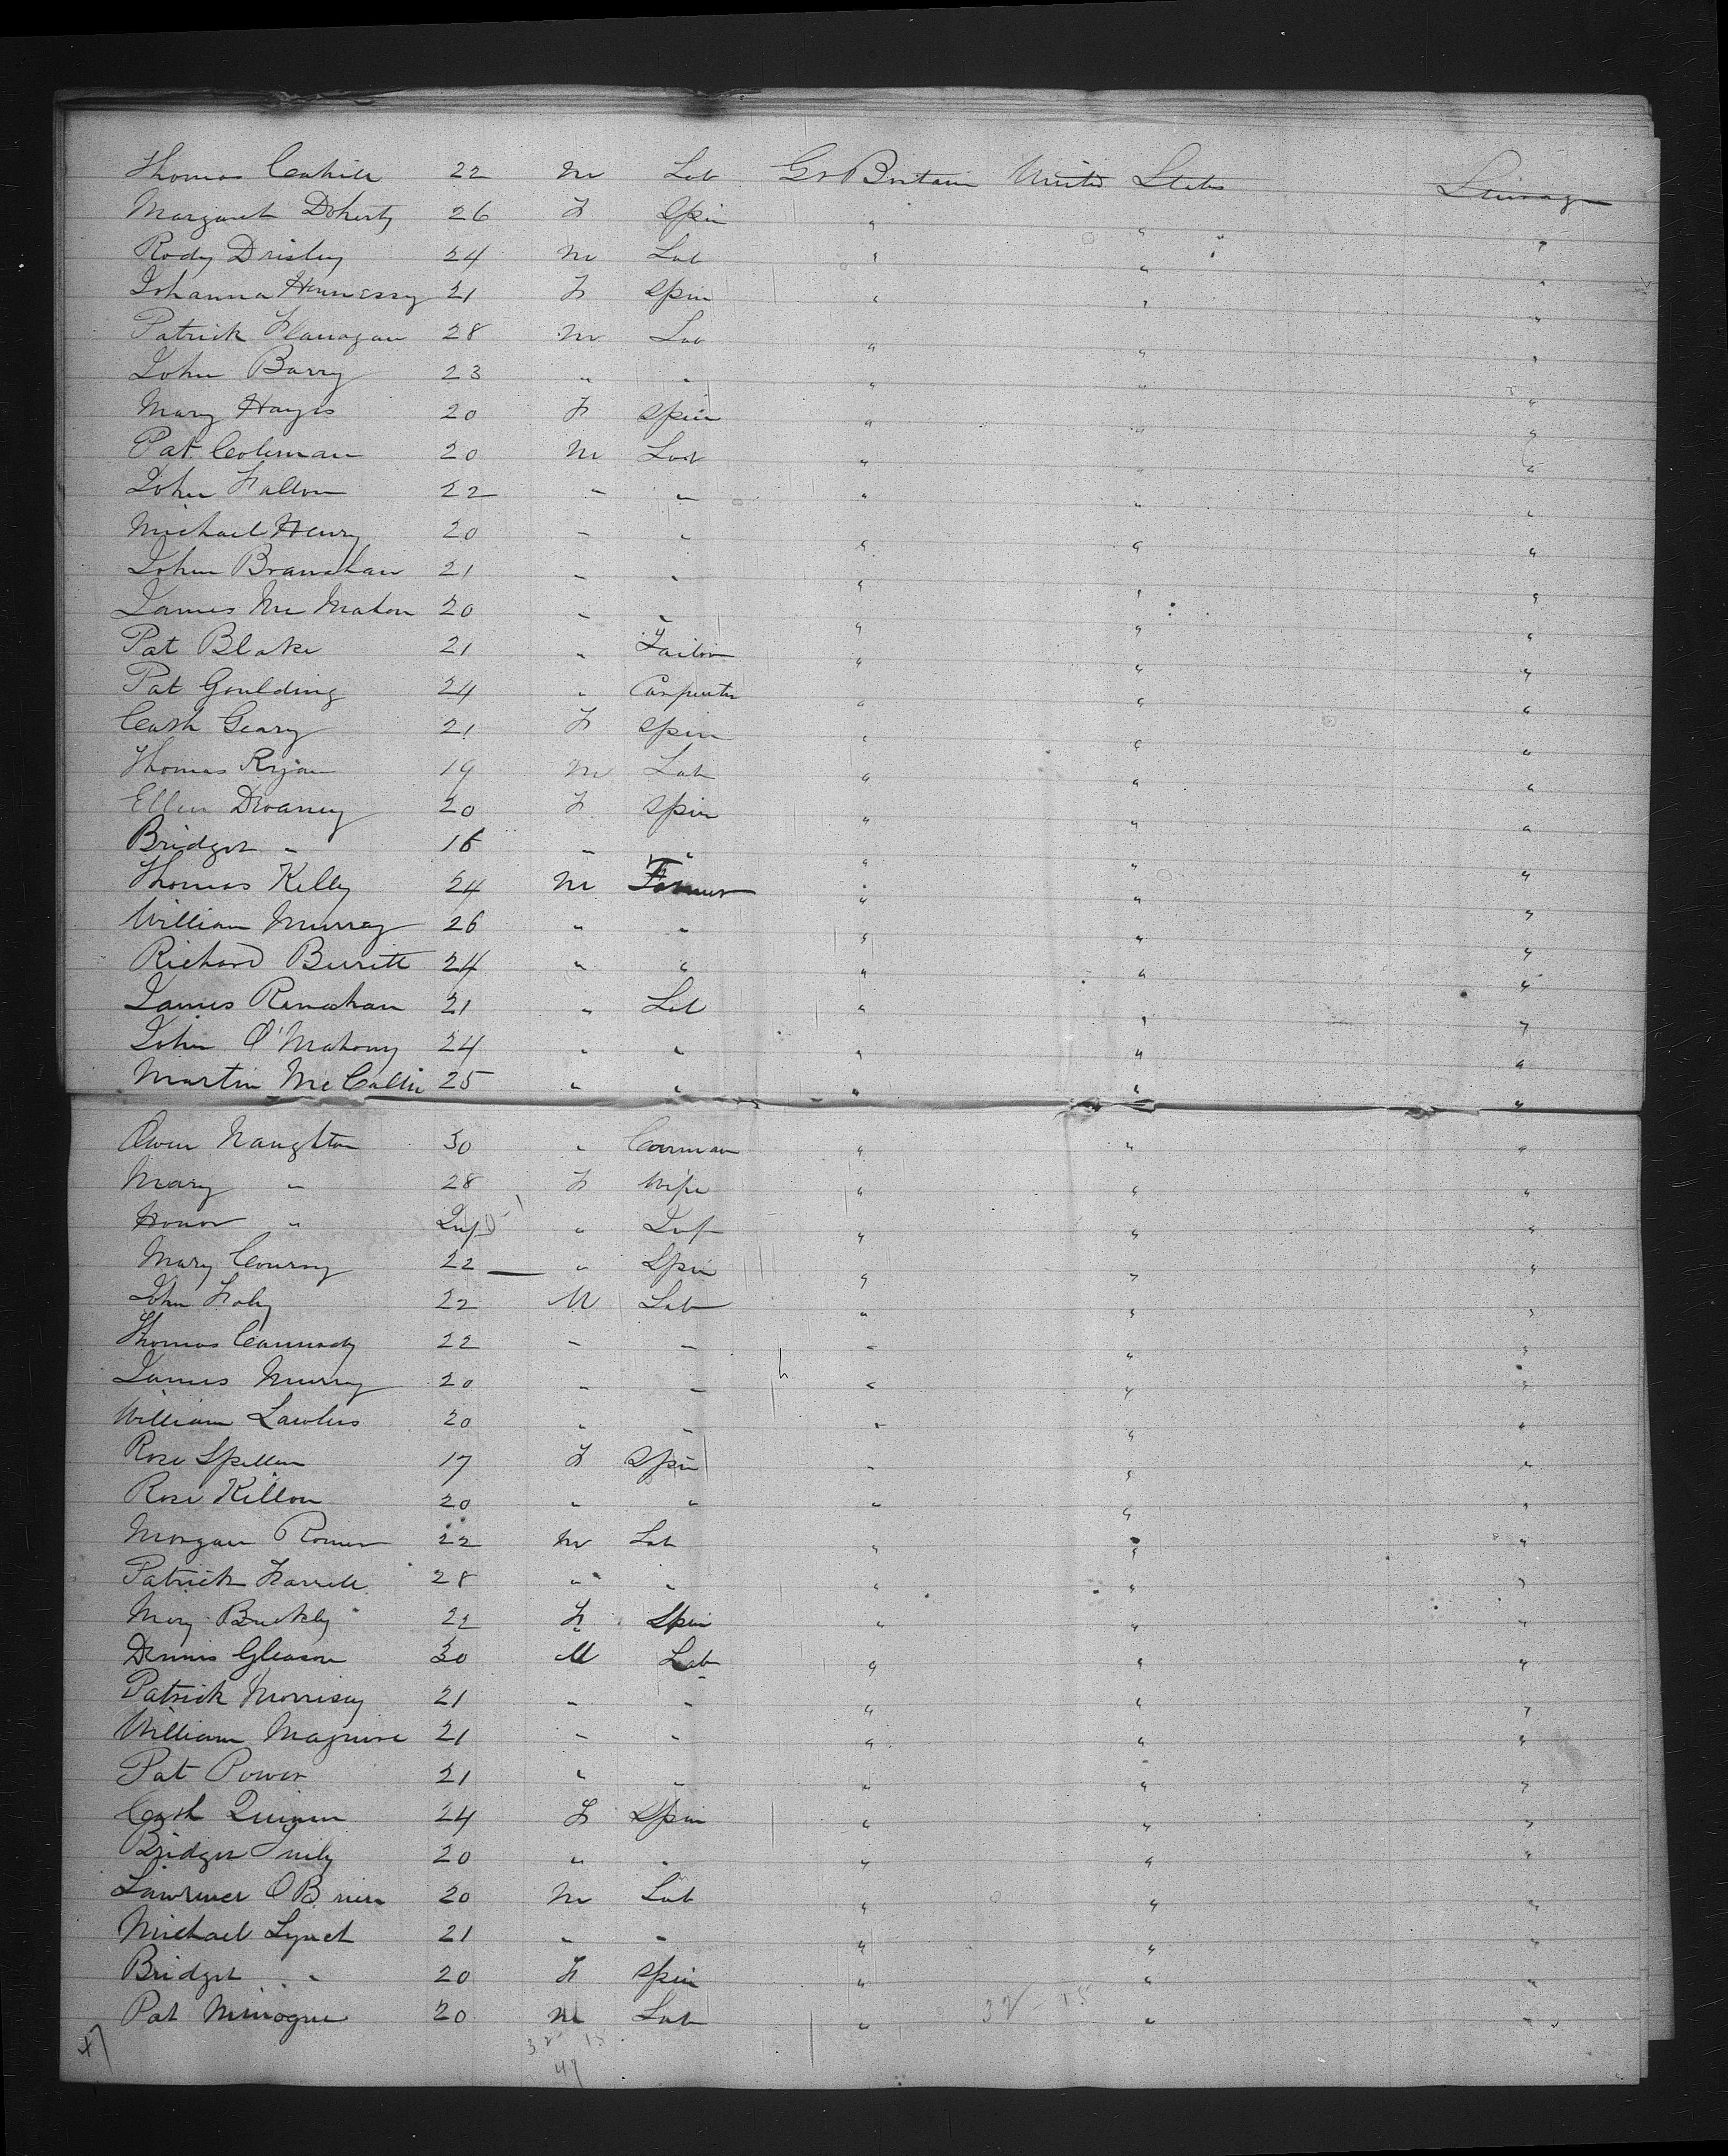 Thomas Cahill 22 M Lab Gr Britain United States Steerage
Margaret Doherty 26 F Spin " " "
Rody Drisley 24 M Lab " " "
Johanna Hennessy 21 F Spin " " "
Patrick Flanagan 28 M Lab " " "
John Barry 23 " " " " "
Mary Hayes 20 F Spin " " "
Pat Coleman 20 M Lab " " "
John Fallon 22 " " " " "
Michael Henry 20 " " " " "
John Branahan 21 " " " " "
James Mc Mahon 20 " " " " "
Pat Blake 21 " Tailor " " "
Pat Goulding 24 " Carpenter " " "
Cath Geary 21 F Spin " " "
Thomas Ryan 19 M Lab " " "
Ellen Devaney 20 F Spin " " "
Bridget " 16 " " " " "
Thomas Kelly 24 M Farmer " " "
William Murray 26 " " " " "
Richard 24 " " " " "
James Renahan 21 " Lab " " "
John O'Mahony 24 " " " " "
Martin 25 " " " " "
Owen Naughton 30 " Carman " " "
Mary " 28 F Wife " " "
Honor " Inf " Inf " " "
Mary Conroy 22 " Spin " " "
John Foley 22 M Lab " " "
Thomas 22 " " " " "
James Murray 20 " " " " "
William Lawless 20 " " " " "
Rose Spellman 17 F Spin " " "
Rose Killon 20 " " " " "
Morgan 22 M Lab " " "
Patrick Farrell 28 " " " " "
Mary Buckly 22 F Spin " " "
Dennis Gleason 30 M Lab " " "
Patrick Morrisey 21 " " " " "
William Maguire 21 " " " " "
Pat Power 21 " " " " "
Cath Quinn 24 F Spin " " "
Bridget 20 " " " " "
Lawrence O Brien 20 M Lab " " "
Michael Lynch 21 " " " " "
Bridget " 20 F Spin " " "
Pat Minogue 20 M Lab " " "
32 - 15
47
32 15
47